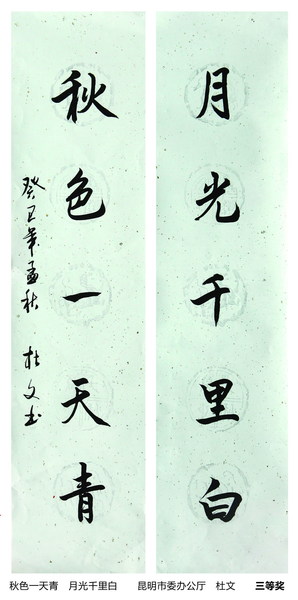 月光千里白
秋色一天青
癸卯年孟秋 杜文书
秋色一天青 月光千里白 昆明市委办公厅 杜文 三等奖